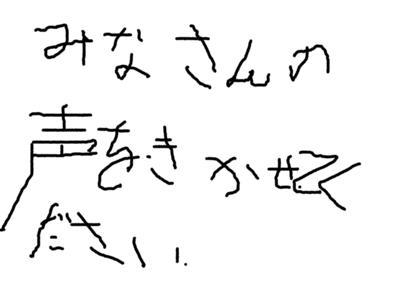 みなさんの
声をきかせてく
ださい